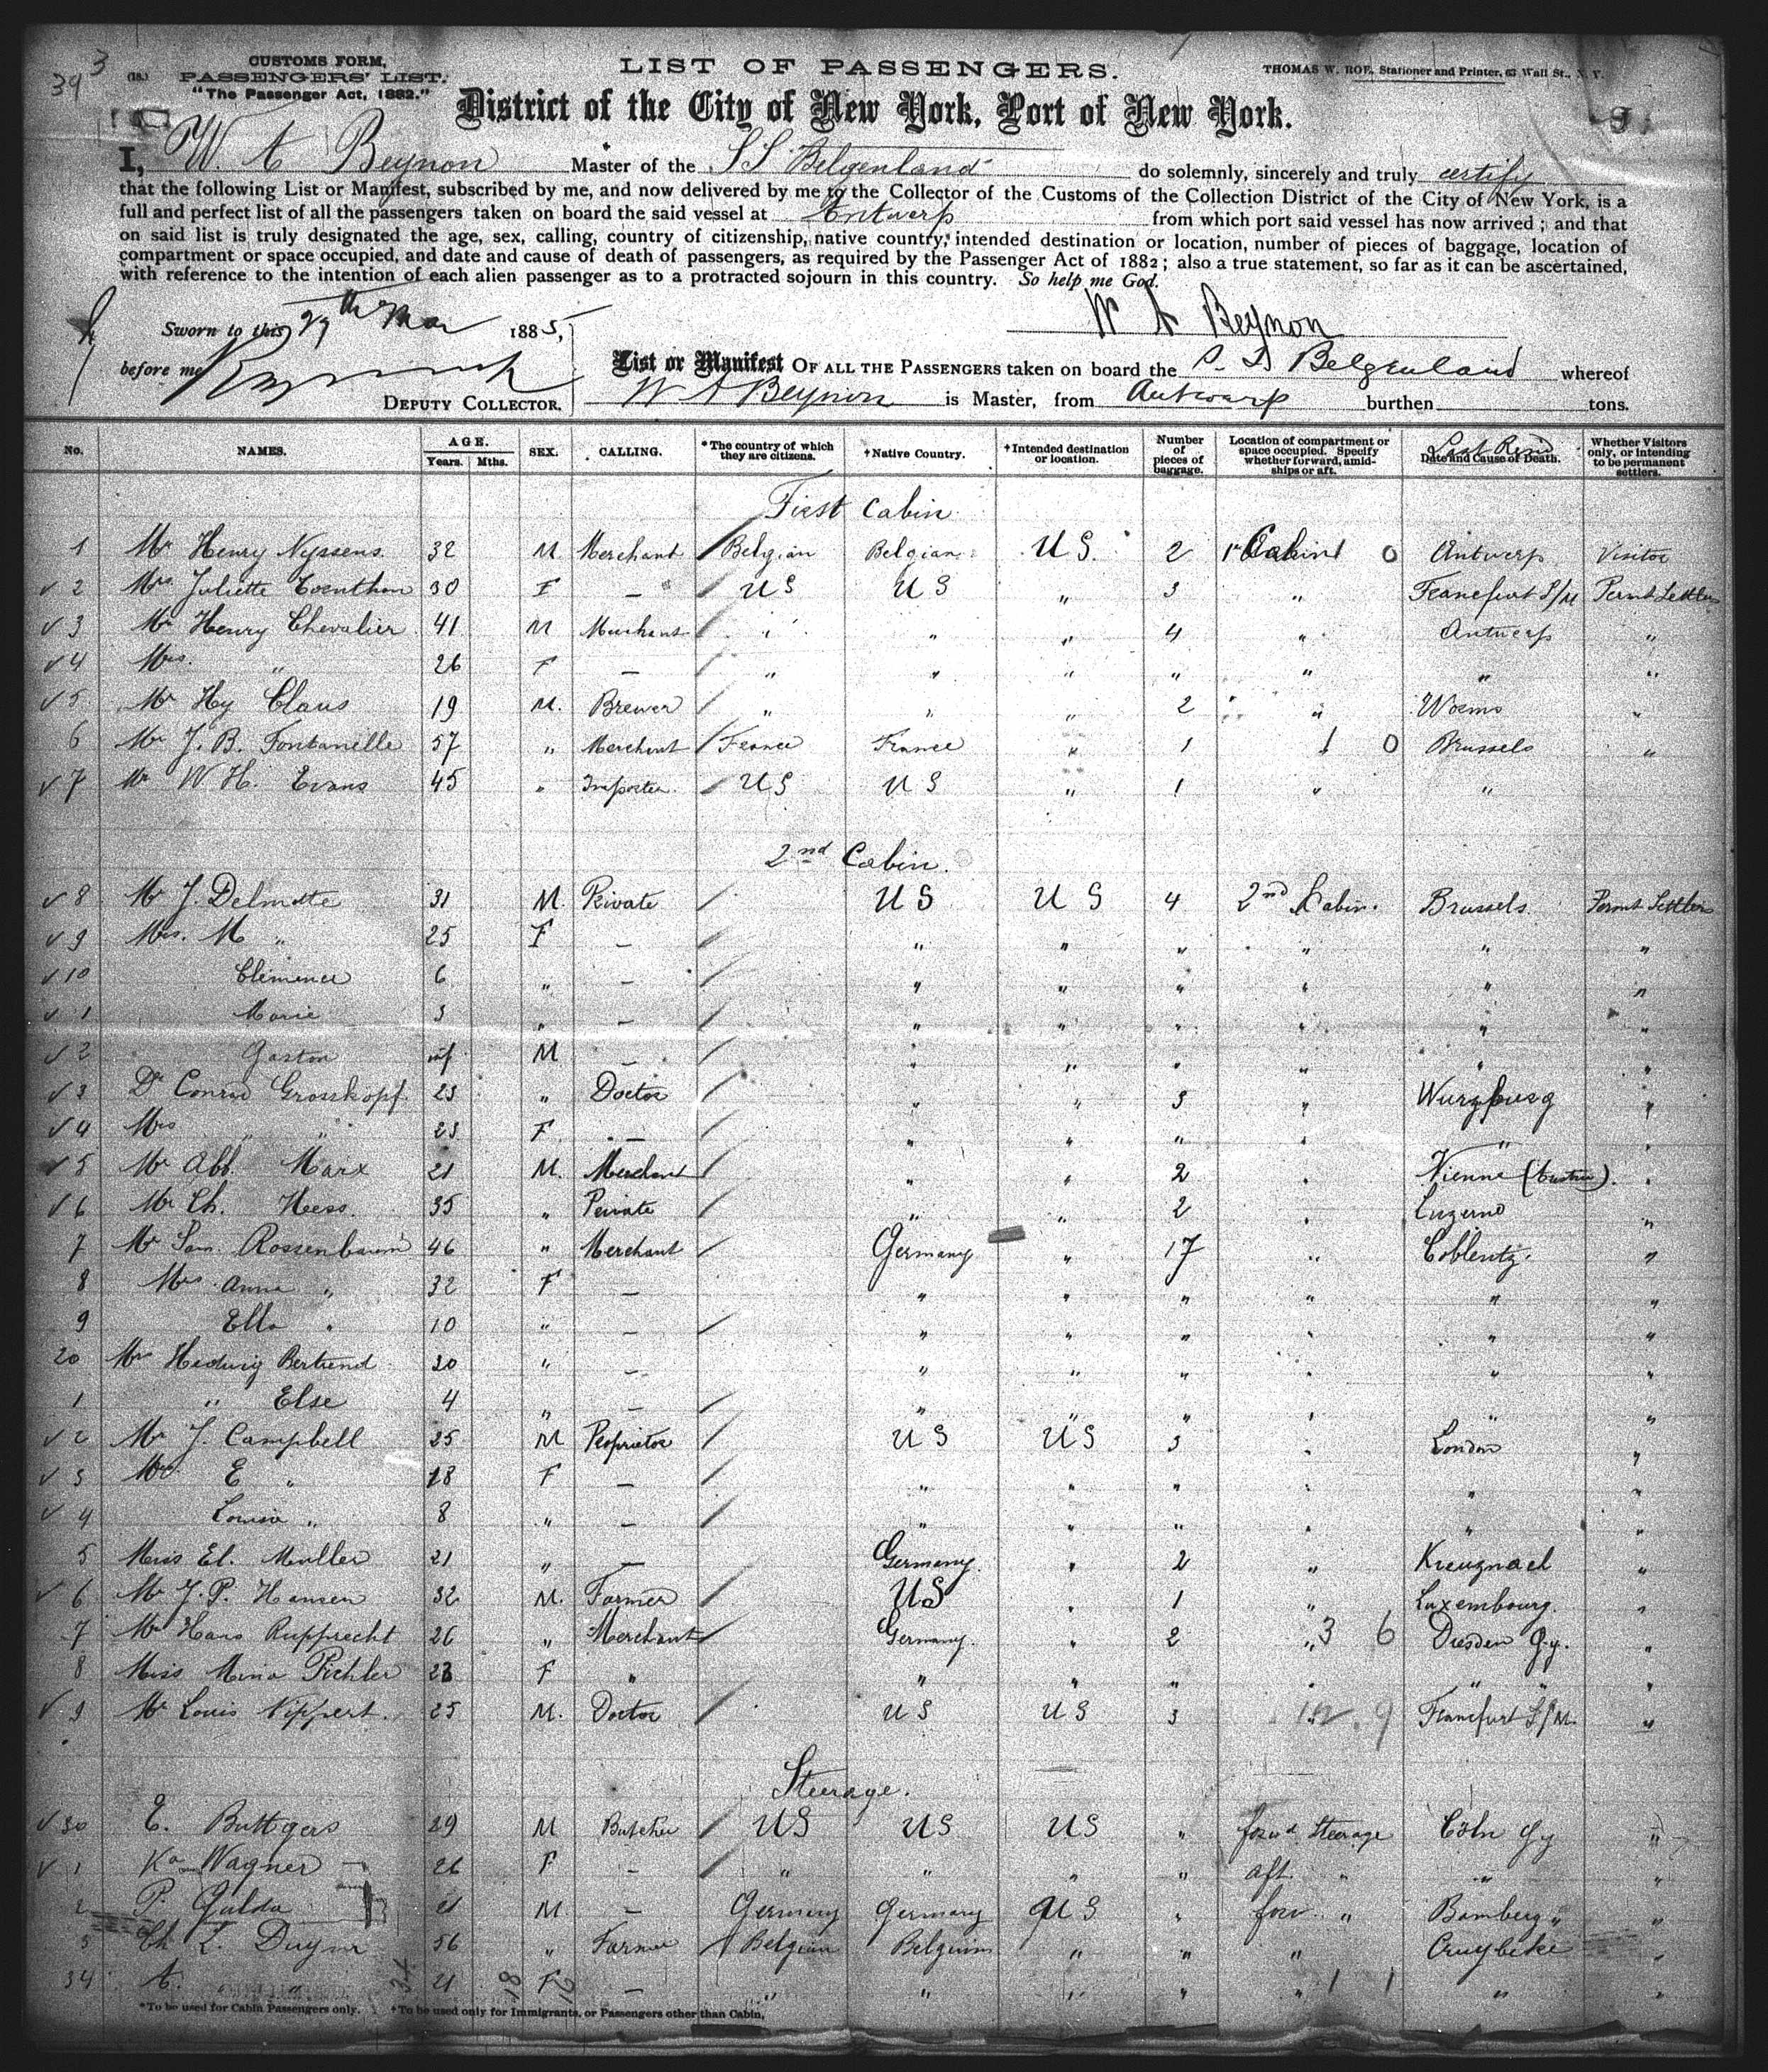 39 3
(18.) CUSTOMS FORM,
PASSENGERS' LIST.
"The Passenger Act, 1882."
LIST OF PASSENGERS.
THOMAS W. ROE, Stationer and Printer, 63 Wall St., N. Y.
District of the City of New York, Port of New York.
I, W. A Beynon Master of the SS Belgenland do solemnly, sincerely and truly certify
that the following List or Manifest, subscribed by me, and now delivered by me to the Collector of the Customs of the Collection District of the City of New York, is a
full and perfect list of all the passengers taken on board the said vessel at Antwerp from which port said vessel has now arrived ; and that
on said list is truly designated the age, sex, calling, country of citizenship, native country, intended destination or location, number of pieces of baggage, location of
compartment or space occupied, and date and cause of death of passengers, as required by the Passenger Act of 1882 ; also a true statement, so far as it can be ascertained,
with reference to the intention of each alien passenger as to a protracted sojourn in this country. So help me God.
W A Beynon
Sworn to this 27th Mar 1885,
before me
DEPUTY COLLECTOR.
List or Manifest OF ALL THE PASSENGERS taken on board the S. S Belgenland whereof
W A Beynon is Master, from Antwerp burthen tons.
No. NAMES. AGE. Years. Mths. SEX. CALLING. *The country of which they are citizens. †Native Country. †Intended destination or location. Number of pieces of baggage. Location of compartment or space occupied. Specify whether forward, amidships or aft. Last Resid Date and Cause of Death. Whether Visitors only, or intending to be permanent settlers.
First Cabin
1 Mr Henry Nyssens 32 M Merchant Belgian Belgian U S. 2 1st Cabin 0 Antwerp Visitor
√ 2 Mrs Juliette 30 F — U S U S " 3 " Francfurt S/M Permt Settlers
√ 3 Mr Henry Chevalier 41 M Merchant " " " 4 " Antwerp "
√ 4 Mrs. " 26 F — " " " " " " "
√ 5 Mr Hy Claus 19 M. Brewer " " " 2 " Worms "
6 Mr J. B. Fontanelle 57 " Merchant France France " 1 1 0 Brussels "
√ 7 Mr W H. Evans 45 " Importer U S U S " 1 " "
2nd Cabin.
√ 8 Mr J. Delmotte 31 M. Private U S U S 4 2nd Cabin. Brussels Permt Settlers
√ 9 Mrs. M " 25 F — " " " " " "
√ 10 Clemence 6 " — " " " " " "
√ 1 Marie 3 " — " " " " " "
√ 2 Gaston inf M — " " " " " "
√ 3 Dr Conrad Grosskopf. 23 " Doctor " " 3 " Wurzburg "
√ 4 Mrs " " 23 F — " " " " " "
√ 5 Mr Abb. Marx 21 M. Merchant " " 2 Vienne (Austria). "
√ 6 Mr Ch. Hess. 35 " Private " " 2 " Luzerne "
7 Mr Sam. Rossenbaum 46 " Merchant Germany " 17 " Coblentz. "
8 Mrs Anna " 32 F — " " " " " "
9 Ella " 10 " — " " " " " "
20 Mrs Hedwig Bertrend 30 " — " " " " " "
1 " Else 4 " — " " " " " "
√ 2 Mr J. Campbell 25 M Proprietor U S U S 3 " London "
√ 3 Mrs E " 18 F — " " " " " "
√ 4 Louisa " 8 " — " " " " " "
5 Miss El. Muller 21 " — Germany. " 2 " Kreuznach "
√ 6 Mr J. P. Hansen 32 M. Farmer US " 1 " Luxembourg. "
7 Mr Hans Rupprecht 26 " Merchant Germany. " 2 " 3 6 Dresden Gy. "
8 Miss Mina Pichler 23 F " " " " " " " "
√ 9 Mr Louis Nippert. 25 M. Doctor U S U S 3 9 Francfurt S/M. "
Steerage.
√ 30 E. Buttgers 29 M Butcher US US US " forwd Steerage Cöln Gy "
√ 1 Ka Wagner 26 F — " " " " aft. " " "
2 P. Gulda 21 M — Germany Germany U S " forw. " Bamberg " "
3 Ch L. Duyver 56 " Farmer Belgian Belgium " " " Cruybeke "
34 A. " " 21 F — " " " " " 1 1 " "
*To be used for Cabin Passengers only. †To be used only for Immigrants, or Passengers other than Cabin.